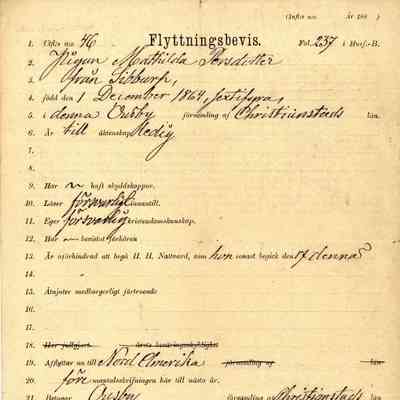 (Inflytt n:o År 188 )
Flyttningsbevis.
1. Utfl:s n:o 46 Fol. 237 i Husf.-B.
2. Pigan Mathilda Persdotter
3. från Sibbarp,
4. född den 1 December 1864, sextifyra,
5. i denna Ousby församling af Christianstads län.
6. Är till äktenskap ledig
7.
8.
9. Har haft skyddskoppor.
10. Läser försvarligt innantill.
11. Eger försvarlig kristendomskunskap.
12. Har bevistat förhören
13. Är oförhindrad att begå H. H. Nattvard, som hon senast begick den 17 dennes
14.
15. Åtnjuter medborgerligt förtroende
16.
17.
18. Har fullgjort årets beväringsskyldighet
19. Afflyttar nu till Nord Amerika församling af län
20. före mantalsskrifningen här till nästa år.
21. Betygar Ousby församling af Christianstads län